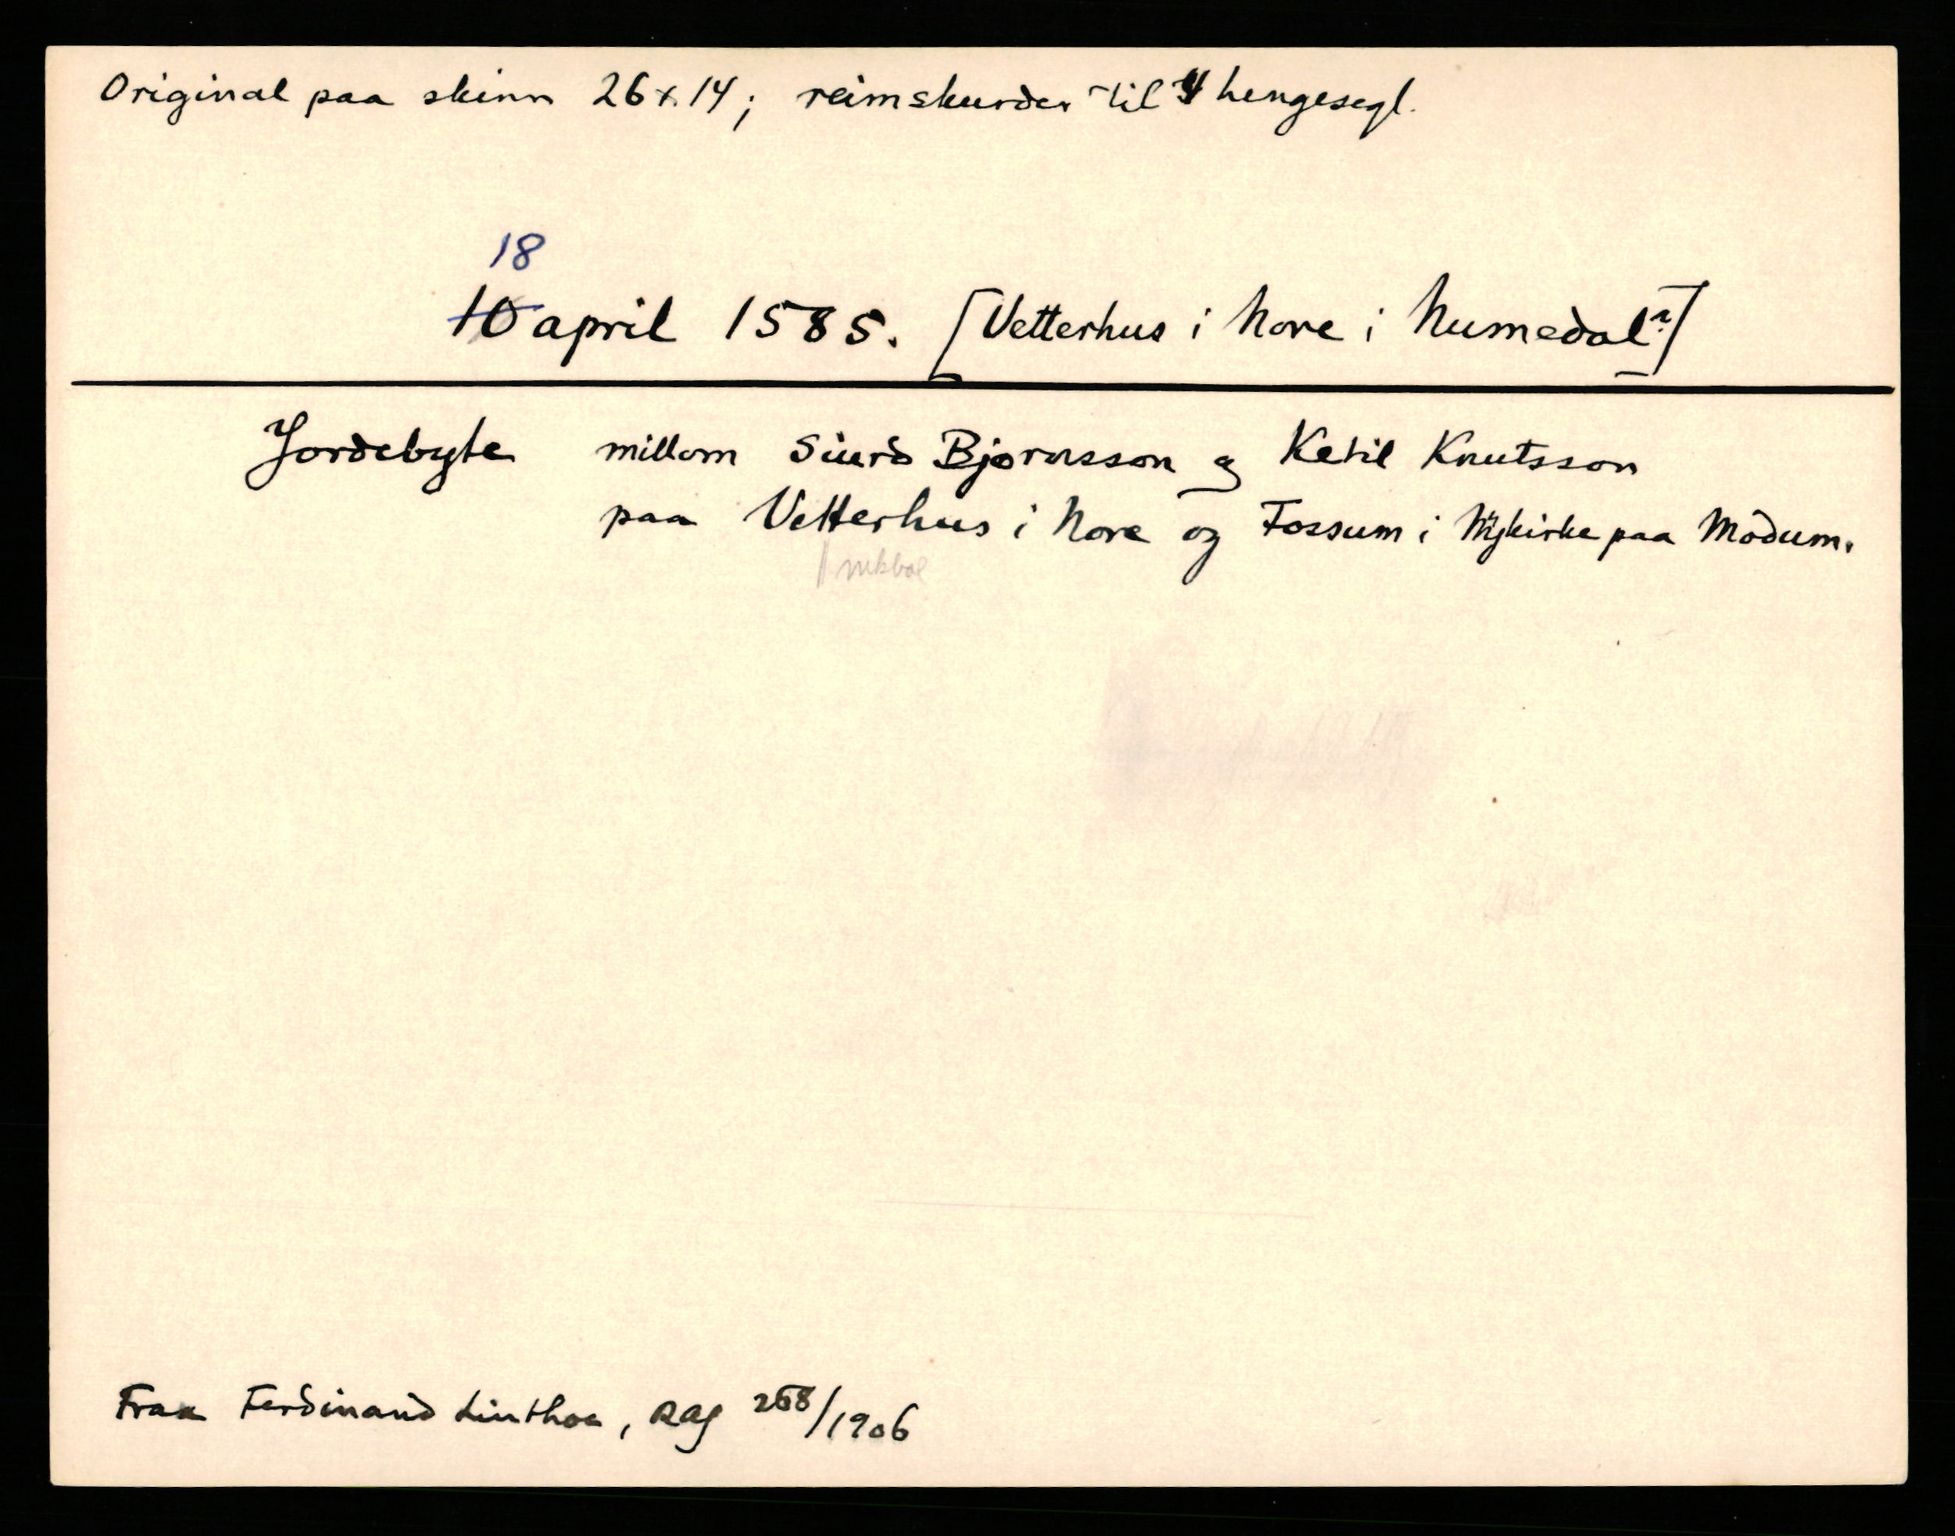 Original paa skinn 26x14; reimskurder til 4 hengesegl.
18
10 april 1585. [Vetterhus i Nore i Numedal?]
Jordebyte millom Siurd Bjørnsson og Ketil Knutsson
paa Vetterhus i Nore og Fossum i Nykirke paa Modum.
Fraa Ferdinand Linthoe, RAJ 268/1906